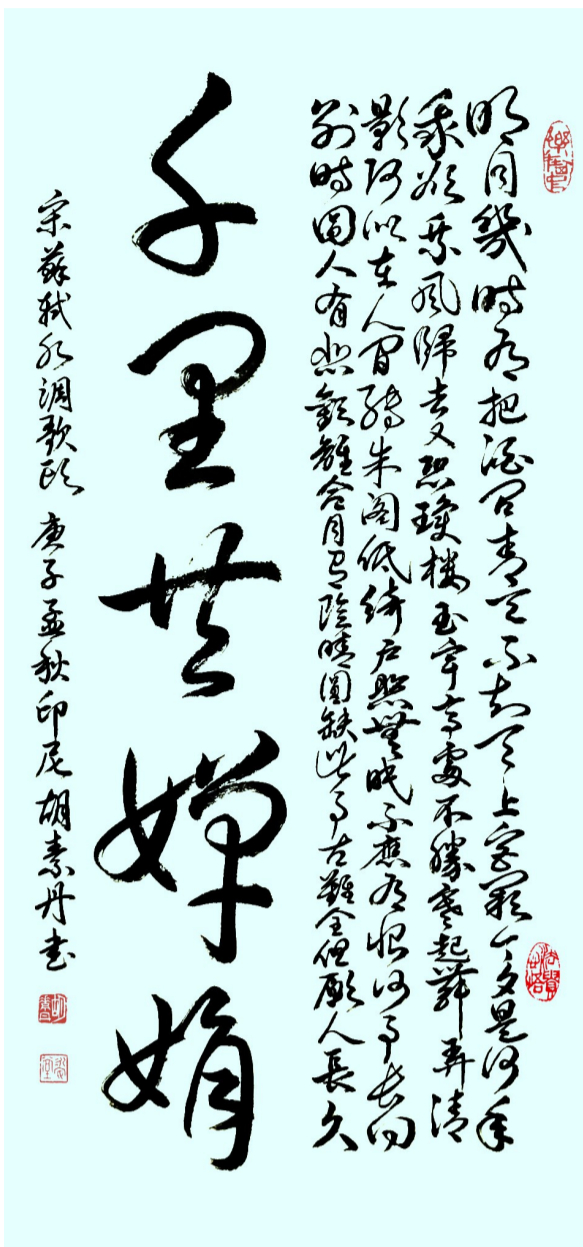 明月幾時有把酒問青天不知天上宮闕今夕是何年
我欲乘風歸去又恐瓊樓玉宇高處不勝寒起舞弄清
影何似在人間轉朱閣低綺戶照無眠不應有恨何事長向
別時圓人有悲歡離合月有陰晴圓缺此事古難全但願人長久
千里共嬋娟
宋蘇軾水調歌頭 庚子孟秋印尼胡素丹書